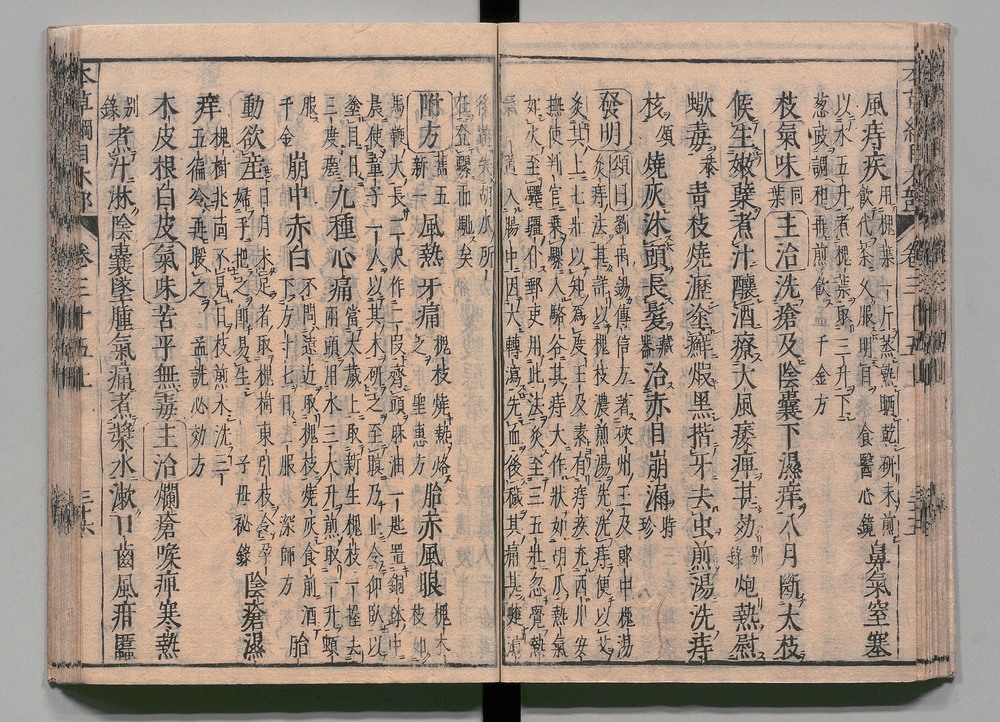 風痔疾 用槐葉一斤蒸熟晒乾研末煎飲代茶久服明目食醫心鏡 鼻氣窒塞
以水五升煮槐葉取三升下葱豉調和再煎飲孟千金方
枝氣味 同葉 主治 洗瘡及陰囊下濕痒八月斷大枝
候生嫩蘗煮汁釀酒療大風痿痺甚効 別錄 炮熱熨
蠍毒 恭 青枝燒瀝塗癬煅黑揩牙去虫煎湯洗痔
核 頌 燒灰沐頭長髮 藏器 治赤目崩漏 時珍
發明 頌曰劉禹錫傳信方著硤州王及郎中槐湯
灸痔法甚詳以槐枝濃煎湯先洗痔便以艾
灸其上七壯以知為度王及素有痔疾充西川安
撫使判官乘騾入駱谷其痔大作狀如胡瓜熱氣
如火至驛僵仆郵吏用此法灸至三五壯忽覺熱
氣一道入腸中因大轉瀉先血後穢其痛甚楚瀉
後遂失胡瓜所在登騾而馳矣
附方 舊五新一 風熱牙痛 槐枝燒熱烙之聖惠方 胎赤風眼 槐木枝如
馬鞭大長二尺作二段齊頭麻油一匙置銅鉢中
晨使童子一人以其木研之至瞑乃止令仰臥以
塗目日三度瘥 九種心痛 當太歲上取新生槐枝一握去
兩頭用水三大升煎取一升頓
服千金 崩中赤白 不問遠近取槐枝燒灰食前酒下方寸匕日二服深師方 胎
動欲產 日月未足者取槐樹東引枝令孕婦手把之即易生子母秘錄 陰瘡濕
痒 槐樹北面不見日枝煎水洗三五徧冷再暖之孟詵必効方
木皮根白皮 氣味 苦平無毒 主治 爛瘡喉痺寒熱
別錄 煮汁淋陰囊墜腫氣痛煮漿水漱口齒風疳䘌
本草綱目木部 卷三十五上 三十六